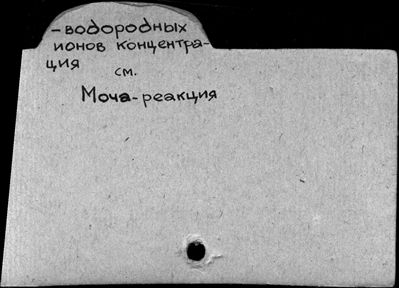 - водородных
ионов концентра-
ция
см.
Моча-реакция